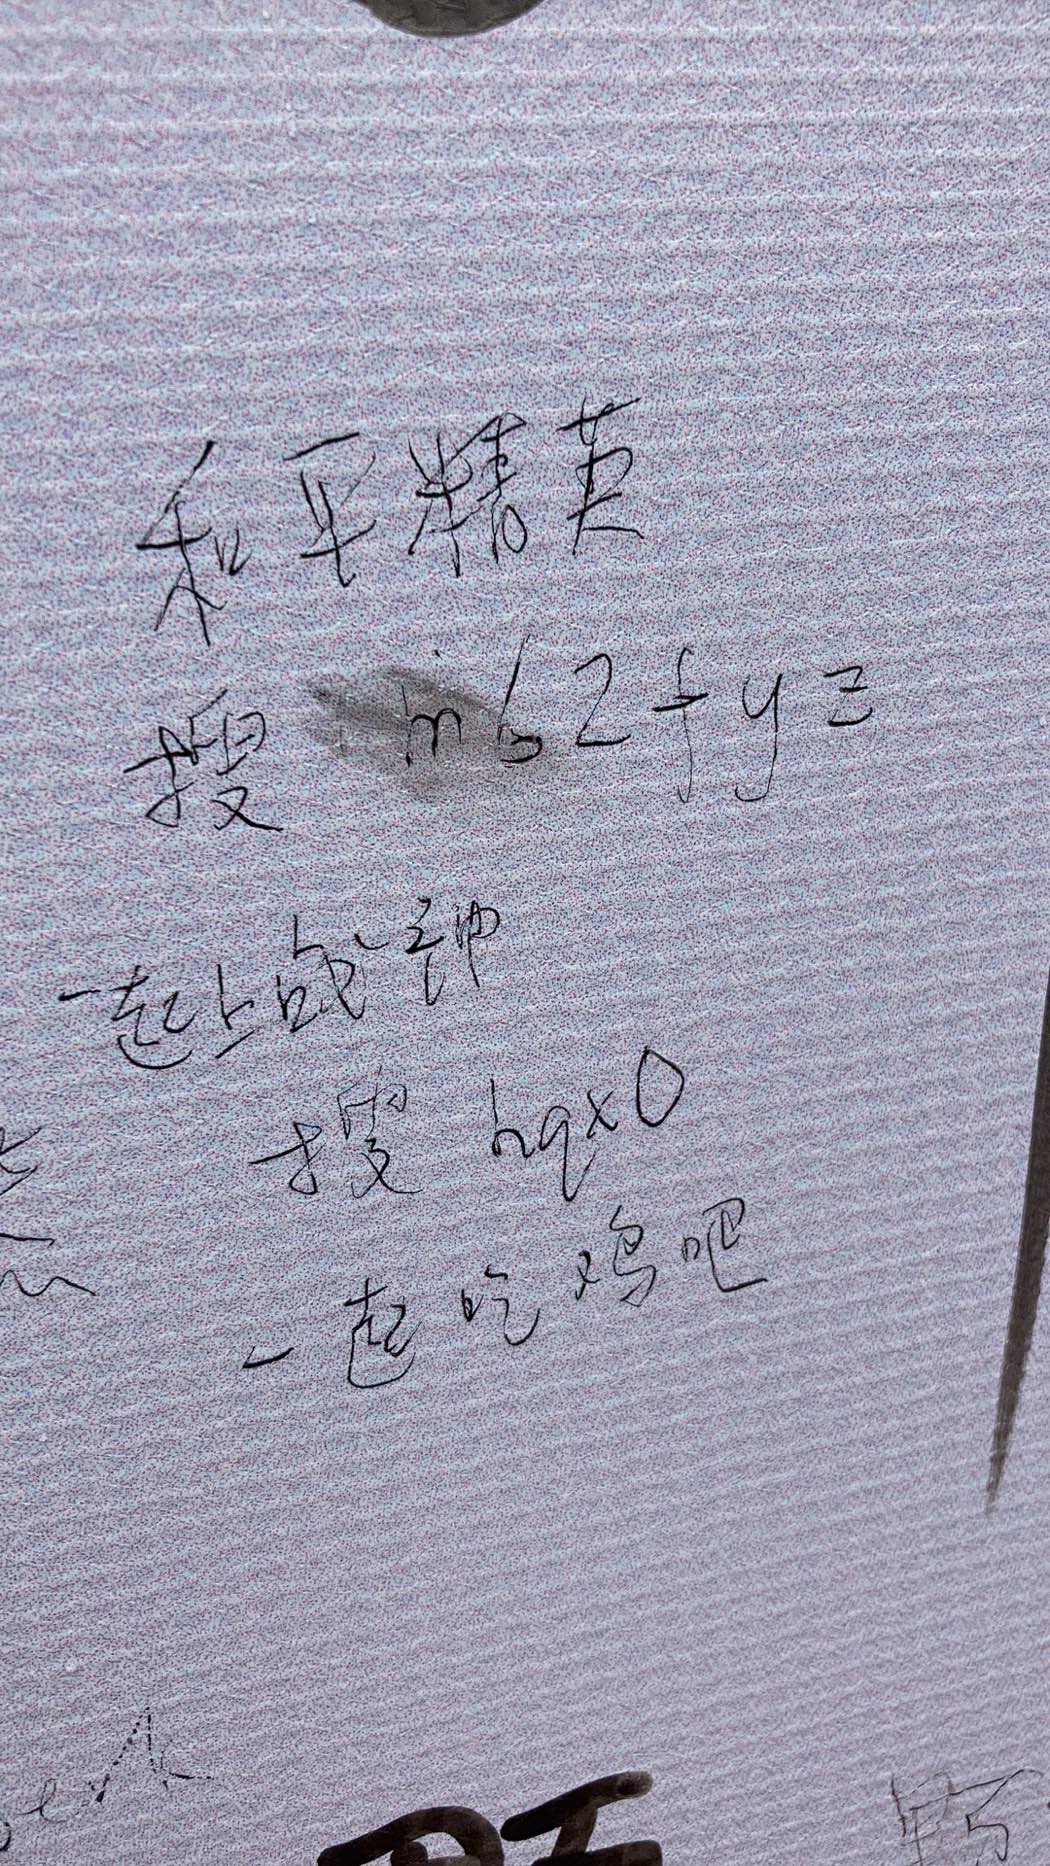 和平精英
搜 m62fyz
一起上战神
搜 hqx0
一起吃鸡吧